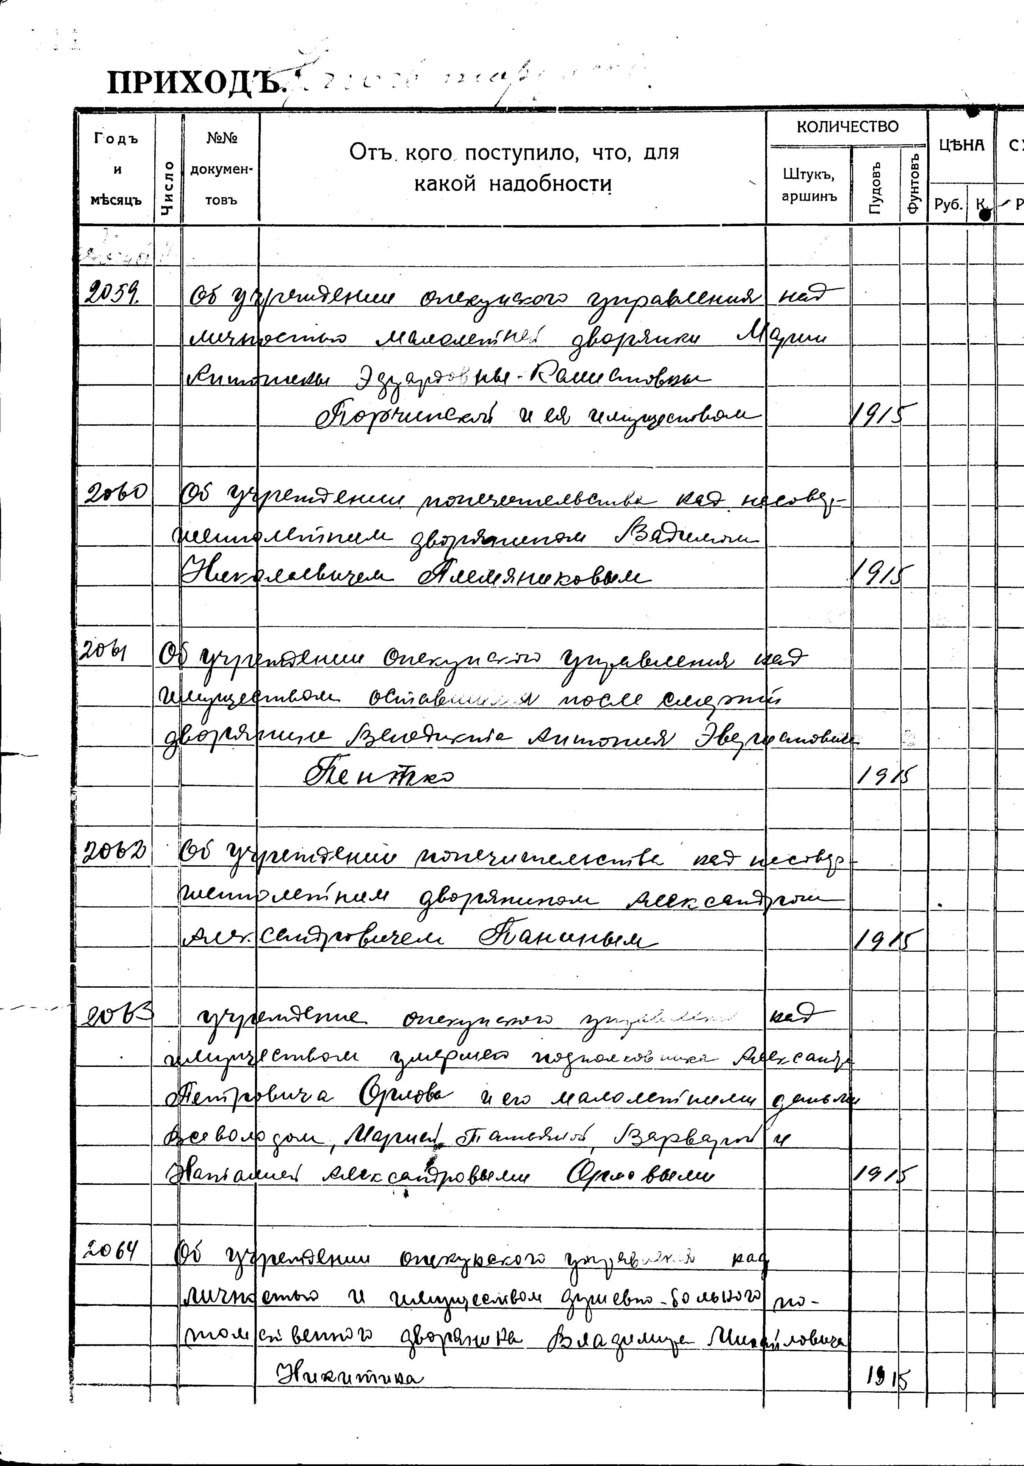 ПРИХОДЪ.
Годъ и мѣсяцъ
Число
№№ докумен-товъ
Отъ кого поступило, что, для какой надобности
КОЛИЧЕСТВО
Штукъ, аршинъ
Пудовъ
Фунтовъ
ЦѢНА
Руб.
К.
2059. Об учреждении опекунского управления над
личностью малолетней дворянки Марии
Антонины Эдуардовны-Казимировны
и ея имуществом 1915
2060 Об учреждении попечительства над несовер-
шеннолетним дворянином Вадимом
Николаевичем Племянниковым 1915
2061 Об учреждении опекунского управления над
имуществом оставшимся после смерти
дворянина Венедикта Антония
Пентко 1915
2062 Об учреждении попечительства над несовер-
шеннолетним дворянином Александром
Александровичем Паниным 1915
2063 учреждение опекунского управления над
имуществом умершего подполковника Александра
Петровича Орлова и его малолетними детьми
Всеволодом, Марией, Татьяной, Варварой и
Наталией Александровыми Орловыми 1915
2064 Об учреждении опекунского управления над
личностью и имуществом душевно-больного по-
томственного дворянина Владимира Михайловича
Никитина 1915